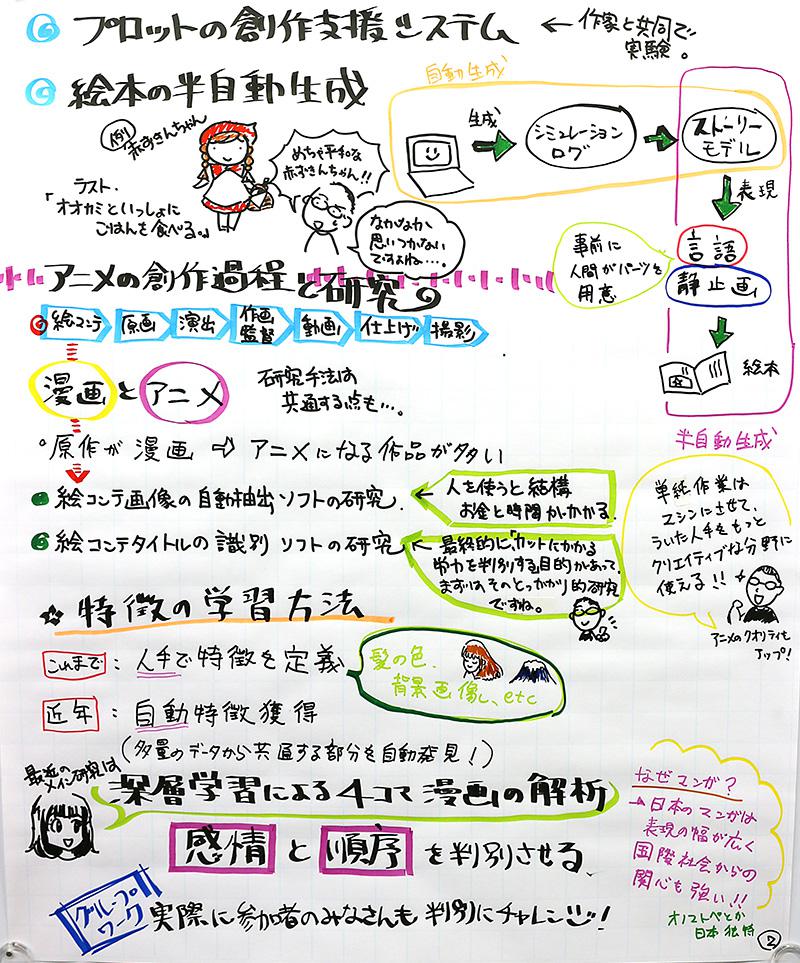 プロットの創作支援システム ← 作家と共同で
実験。
絵本の半自動生成
自動生成
例)
赤ずきんちゃん
めちゃ平和な
赤ずきんちゃん!!
ラスト、
「オオカミといっしょに
ごはんを食べる。」
なかなか
思いつかない
ですよね…。
生成
シミュレーション
ログ
ストーリー
モデル
表現
言語
静止画
事前に
人間がパーツを
用意
絵本
半自動生成
アニメの創作過程と研究
絵コンテ 原画 演出 作画
監督 動画 仕上げ 撮影
漫画とアニメ
研究手法は
共通する点も…。
原作が漫画 ⇨ アニメになる作品が多い
絵コンテ画像の自動抽出ソフトの研究
← 人を使うと結構
お金と時間がかかる。
絵コンテタイトルの識別ソフトの研究
← 最終的に、「カットにかかる
労力を判別する」目的があって、
まずは、そのとっかかり的研究
ですね。
単純作業は
マシンにさせて、
ういた人手をもっと
クリエイティブな分野に
使える!!
アニメのクオリティも
アップ!
☆ 特徴の学習方法
これまで : 人手で特徴を定義
髪の色、
背景画像、etc
近年 : 自動特徴獲得
(多量のデータから共通する部分を自動発見!)
最近の
メイン研究は
深層学習による4コマ漫画の解析
感情と順序を判別させる
なぜマンガ?
→ 日本のマンガは
表現の幅が広く
国際社会からの
関心も強い!!
オノマトペとか
日本独特
グループ
ワーク
実際に参加者のみなさんも判別にチャレンジ!
2